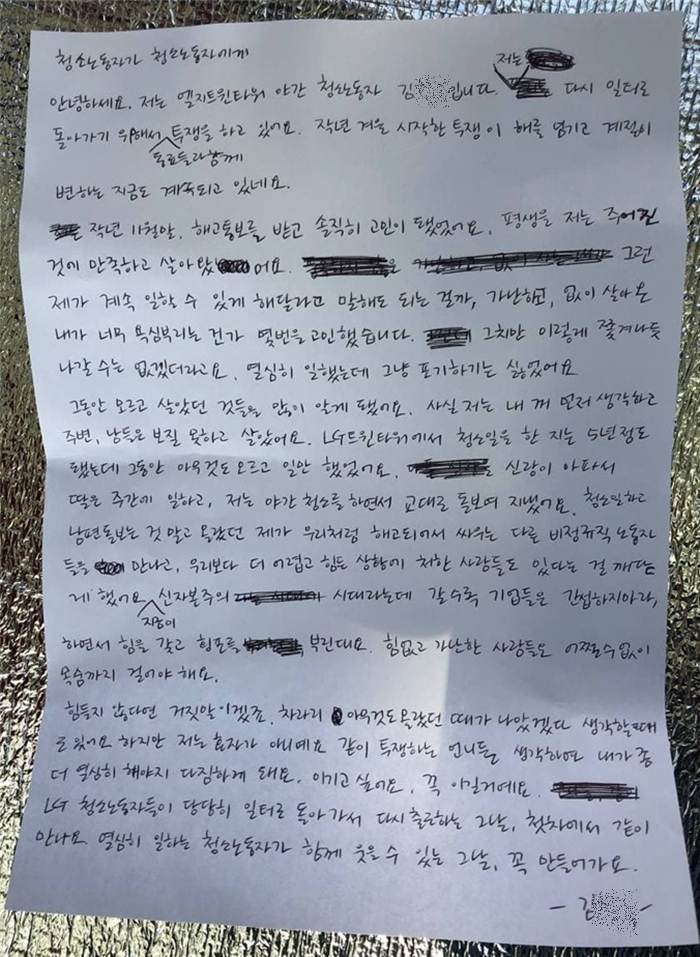 청소노동자가 청소노동자에게
저는
안녕하세요. 저는 엘지트윈타워 야간 청소노동자 김 입니다. 다시 일터로
돌아가기 위해서 투쟁을 하고 있어요. 작년 겨울 시작한 투쟁이 해를 넘기고 계절이
동료들과함께
변하는 지금도 계속되고 있네요.
작년 11월말, 해고통보를 받고 솔직히 고민이 됐었어요. 평생을 저는 주어진
것에 만족하고 살아왔어요. 그런
제가 계속 일할 수 있게 해달라고 말해도 되는 걸까, 가난하고, 없이 살아온
내가 너무 욕심부리는 건가 몇번을 고민했습니다. 그치만 이렇게 쫓겨나듯
나갈 수는 없겠더라고요. 열심히 일했는데 그냥 포기하기는 싫었어요
그동안 모르고 살았던 것들을 많이 알게 됐어요. 사실 저는 내 꺼 먼저 생각하고
주변, 남들은 보질 못하고 살았어요. LG트윈타워에서 청소일을 한 지는 5년정도
됐는데 그동안 아무것도모르고 일만 했었어요. 신랑이 아파서
딸은 주간에 일하고, 저는 야간 청소를 하면서 교대로 돌보며 지냈어요. 청소일하고
남편돌보는 것 말고 몰랐던 제가 우리처럼 해고되어서 싸우는 다른 비정규직 노동자
들을 만나고, 우리보다 더 어렵고 힘든 상황에 처한 사람들도 있다는 걸 깨닫
게 했어요. 신자본주의 시대라는데 갈수록 기업들은 간접하지마라,
하면서 힘을 갖고 횡포를 부린대요. 힘없고 가난한 사람들은 어쩔수없이
목숨까지 걸어야 해요.
힘들지 않다면 거짓말이겠죠. 차라리 아무것도몰랐던 때가 나았겠다 생각할때
도있어요 하지만 저는 혼자가 아니예요 같이 투쟁하는 언니들 생각하면 내가 좀
더 열심히 해야지 다짐하게 돼요. 이기고 싶어요. 꼭 이길거예요.
LG 청소노동자들이 당당히 일터로 돌아가서 다시출근하는 그날, 첫차에서 같이
만나요 열심히 일하는 청소노동자가 함께 웃을 수 있는 그날, 꼭 만들어가요.
- 김 -